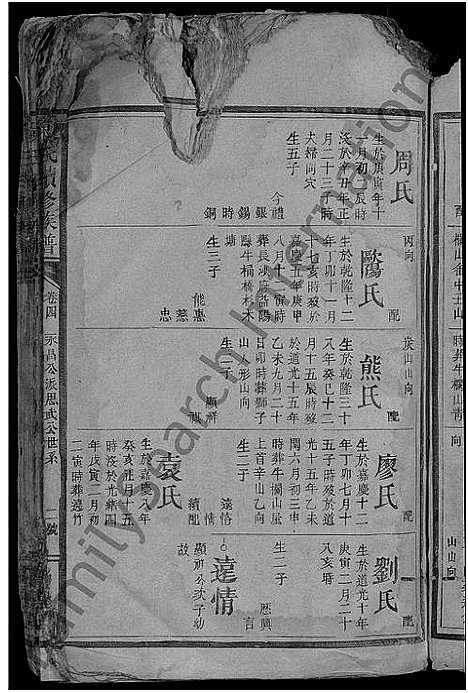 周氏
生於庚寅年十
一月初一辰時
歿於辛丑年正
月二十三子時
夫婦同穴
生五子
今禮
銀
錫
時
銅
丙向
配
歐氏
生於乾隆十二
年丁卯十一月
十七亥時歿於
嘉慶五年庚申
八月十二寅時
葬長沙府益陽
縣牛桐橋杉木
塘
生三子
能惠
蕙
忠
山向
配
熊氏
生於乾隆三十
八年癸巳十二
月十五辰時歿
於道光十五年
乙未九月二十
日卯時葬獅子
山人形山向
生二子
顯辨
配
廖氏
生於嘉慶十二
年丁卯七月十
五子時歿於道
光十五年乙未
閏六月初三申
時葬牛欄山屋
上首辛山乙向
生二子
遠恪
情
續配
袁氏
生於嘉慶八年
癸亥正月十五
時歿於光緒四
年戊寅二月初
二寅時葬邊竹
配
劉氏
生於道光十年
庚寅二月二十
八亥時
生二子
歷興
言
遠情
顯辨公次子幼
故
氏續修族譜
卷四
永昌公派思武公世系